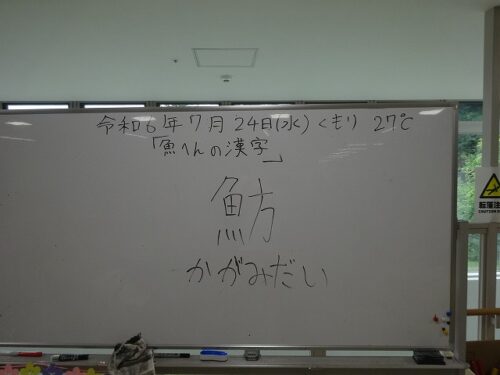 令和6年7月24日(水)くもり 27℃
「魚へんの漢字」
魴
かがみだい
転落注
CAUTION